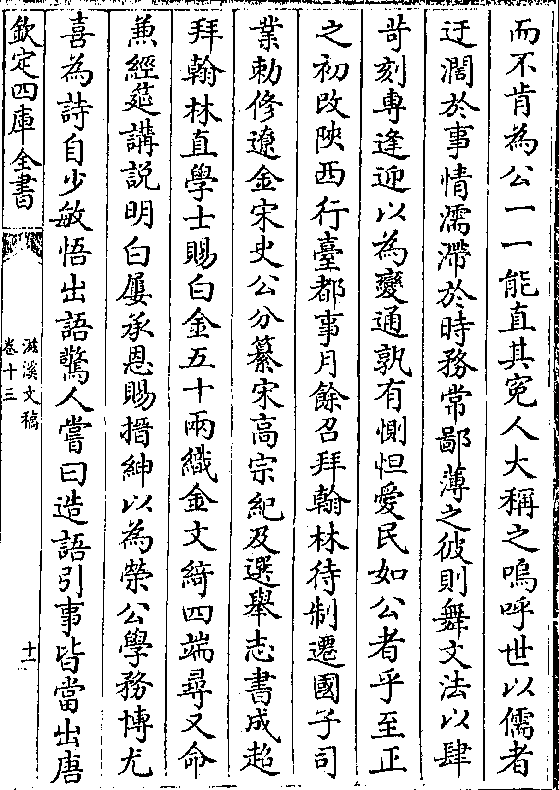 而不肯為公一一能直其寃人大稱之嗚呼世以儒者
迂濶於事情濡滯於時務常鄙薄之彼則舞文法以肆
苛刻專逢迎以為變通孰有惻怛愛民如公者乎至正
之初改陜西行臺都事月餘召拜翰林待制遷國子司
業勅修遼金宋史公分纂宋高宗紀及選舉志書成超
拜翰林直學士賜白金五十兩織金文綺四端尋又命
兼經筵講説明白屢承恩賜搢紳以為榮公學務博尤
喜為詩自少敏悟出語驚人嘗曰造語引事皆當出唐
欽定四庫全書
滋溪文稿
卷十三
十一